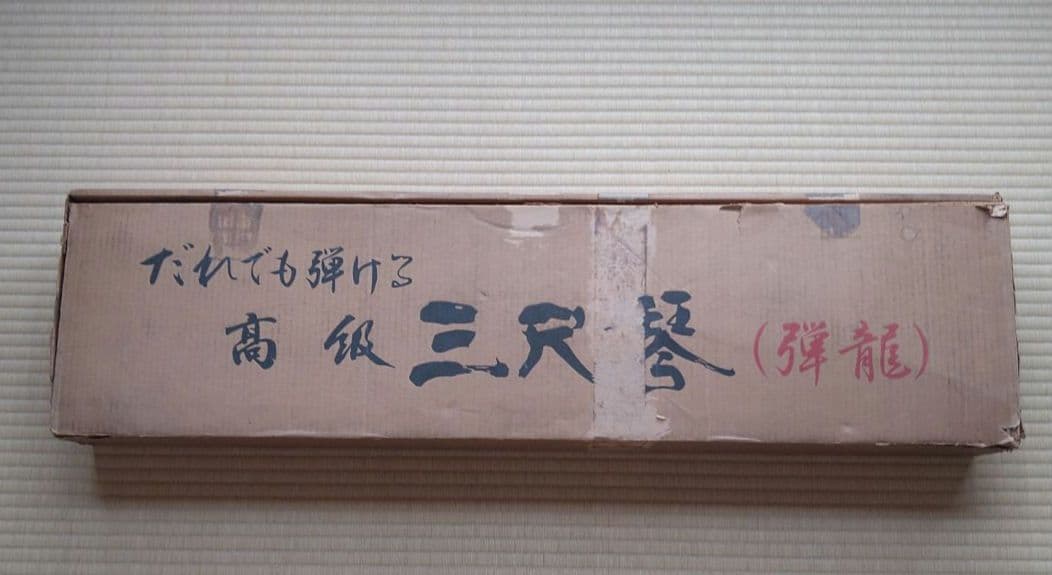 だれでも弾ける
高級三尺琴(弾龍)